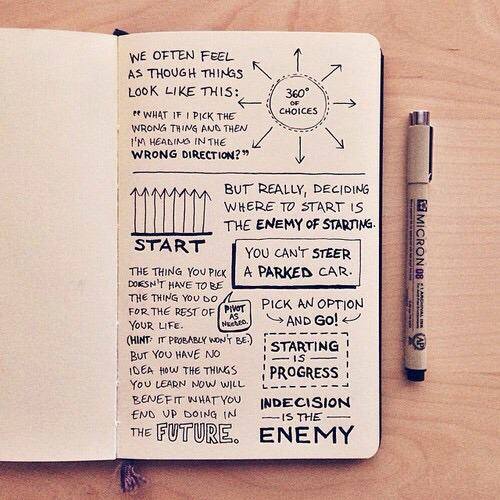 WE OFTEN FEEL
AS THOUGH THINGS
LOOK LIKE THIS:
360°
OF
CHOICES
"WHAT IF I PICK THE
WRONG THING AND THEN
I'M HEADING IN THE
WRONG DIRECTION?"
START
BUT REALLY, DECIDING
WHERE TO START IS
THE ENEMY OF STARTING.
YOU CAN'T STEER
A PARKED CAR.
THE THING YOU PICK
DOESN'T HAVE TO BE
THE THING YOU DO
FOR THE REST OF
YOUR LIFE.
(HINT: IT PROBABLY WON'T BE.)
BUT YOU HAVE NO
IDEA HOW THE THINGS
YOU LEARN NOW WILL
BENEFIT WHAT YOU
END UP DOING IN
THE FUTURE.
PIVOT
AS
NEEDED.
PICK AN OPTION
AND GO!
STARTING
IS
PROGRESS
INDECISION
IS THE
ENEMY
MICRON 08